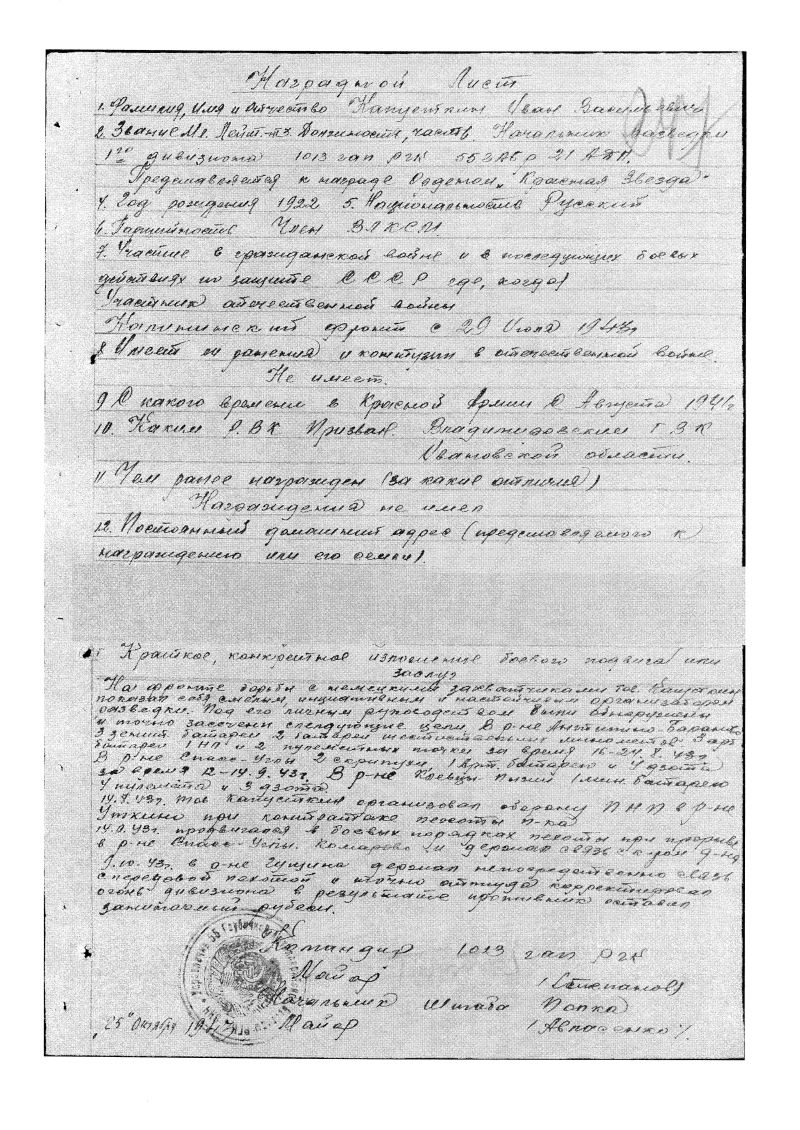 Наградной Лист
1. Фамилия, имя и отчество Капусткин Иван Васильевич
2. Звание Мл. Лейт-т 3. Должность, часть Начальник разведки
1го дивизиона 1013 гап РГК 55 ГАБР 21 АДП.
Представляется к награде Орденом „Красная Звезда"
4. Год рождения 1922 5. Национальность Русский
6. Партийность Член ВЛКСМ.
7. Участие в гражданской войне и в последующих боевых
действиях по защите СССР где, когда)
Участник отечественной войны
Калининский фронт с 29 Июля 1943г
8 Имеет ли ранения и контузии в отечественной войне.
Не имеет.
9 С какого времени в Красной Армии С Августа 1941г
10. Каким Р.В.К Призван. ГВК
Ивановской области.
11 Чем ранее награжден (за какие отличия)
Награждения не имел
12. Постоянный домашний адрес (представляемого к
награждению или его семьи).
Краткое, конкретное изложение боевого подвига или
заслуг
На фронте борьбы с немецкими захватчиками тов. Капусткин
показал себя смелым инициативным и настойчивым организатором
разведки. Под его личным руководством были обнаружены
и точно засечены следующие цели В р-не
3 батареи 2 батареи шестиствольных минометов 3 арт
батареи 1 НП и 2 пулеметных точки за время 16-24. 43г.
В р-не Спасс-Углы 2 скрипухи, 1 Арт. батарею и 4 дзота
за время 12-14.9.43г. В р-не 1 мин. батарею
4 пулемета и 3 дзота
14.9.43г. тов Капусткин организовал оборону ПНП в р-не
Уткино при контратаке пехоты п-ка
14.9.43г. продвигался в боевых порядках пехоты при прорыве
в р-не Спасс-Углы. Комарово и держал связь с к-ром д-на
9.10.43г. в р-не Гущина держал непосредственно связь
с передовой пехотой и точно оттуда корректировал
огонь дивизиона в результате противник оставил
занимаемый рубеж.
Командир 1013 гап РГК
Майор
/Степанов/
Начальник Штаба Полка
„25" Октября 194 Майор /Авласенко/.